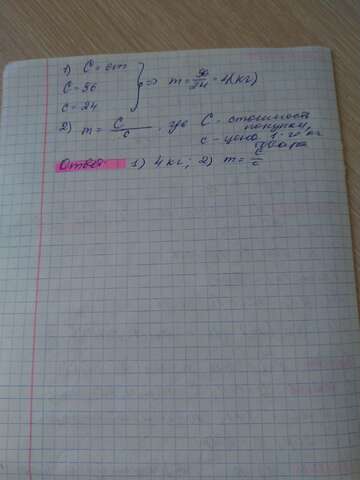 1) C = cm
C = 96
c = 24
⟹ m = 96/24 = 4(кг)
2) m = C/c, где C - стоимость
покупки,
c - цена 1-го кг
товара
Ответ: 1) 4 кг; 2) m = C/c